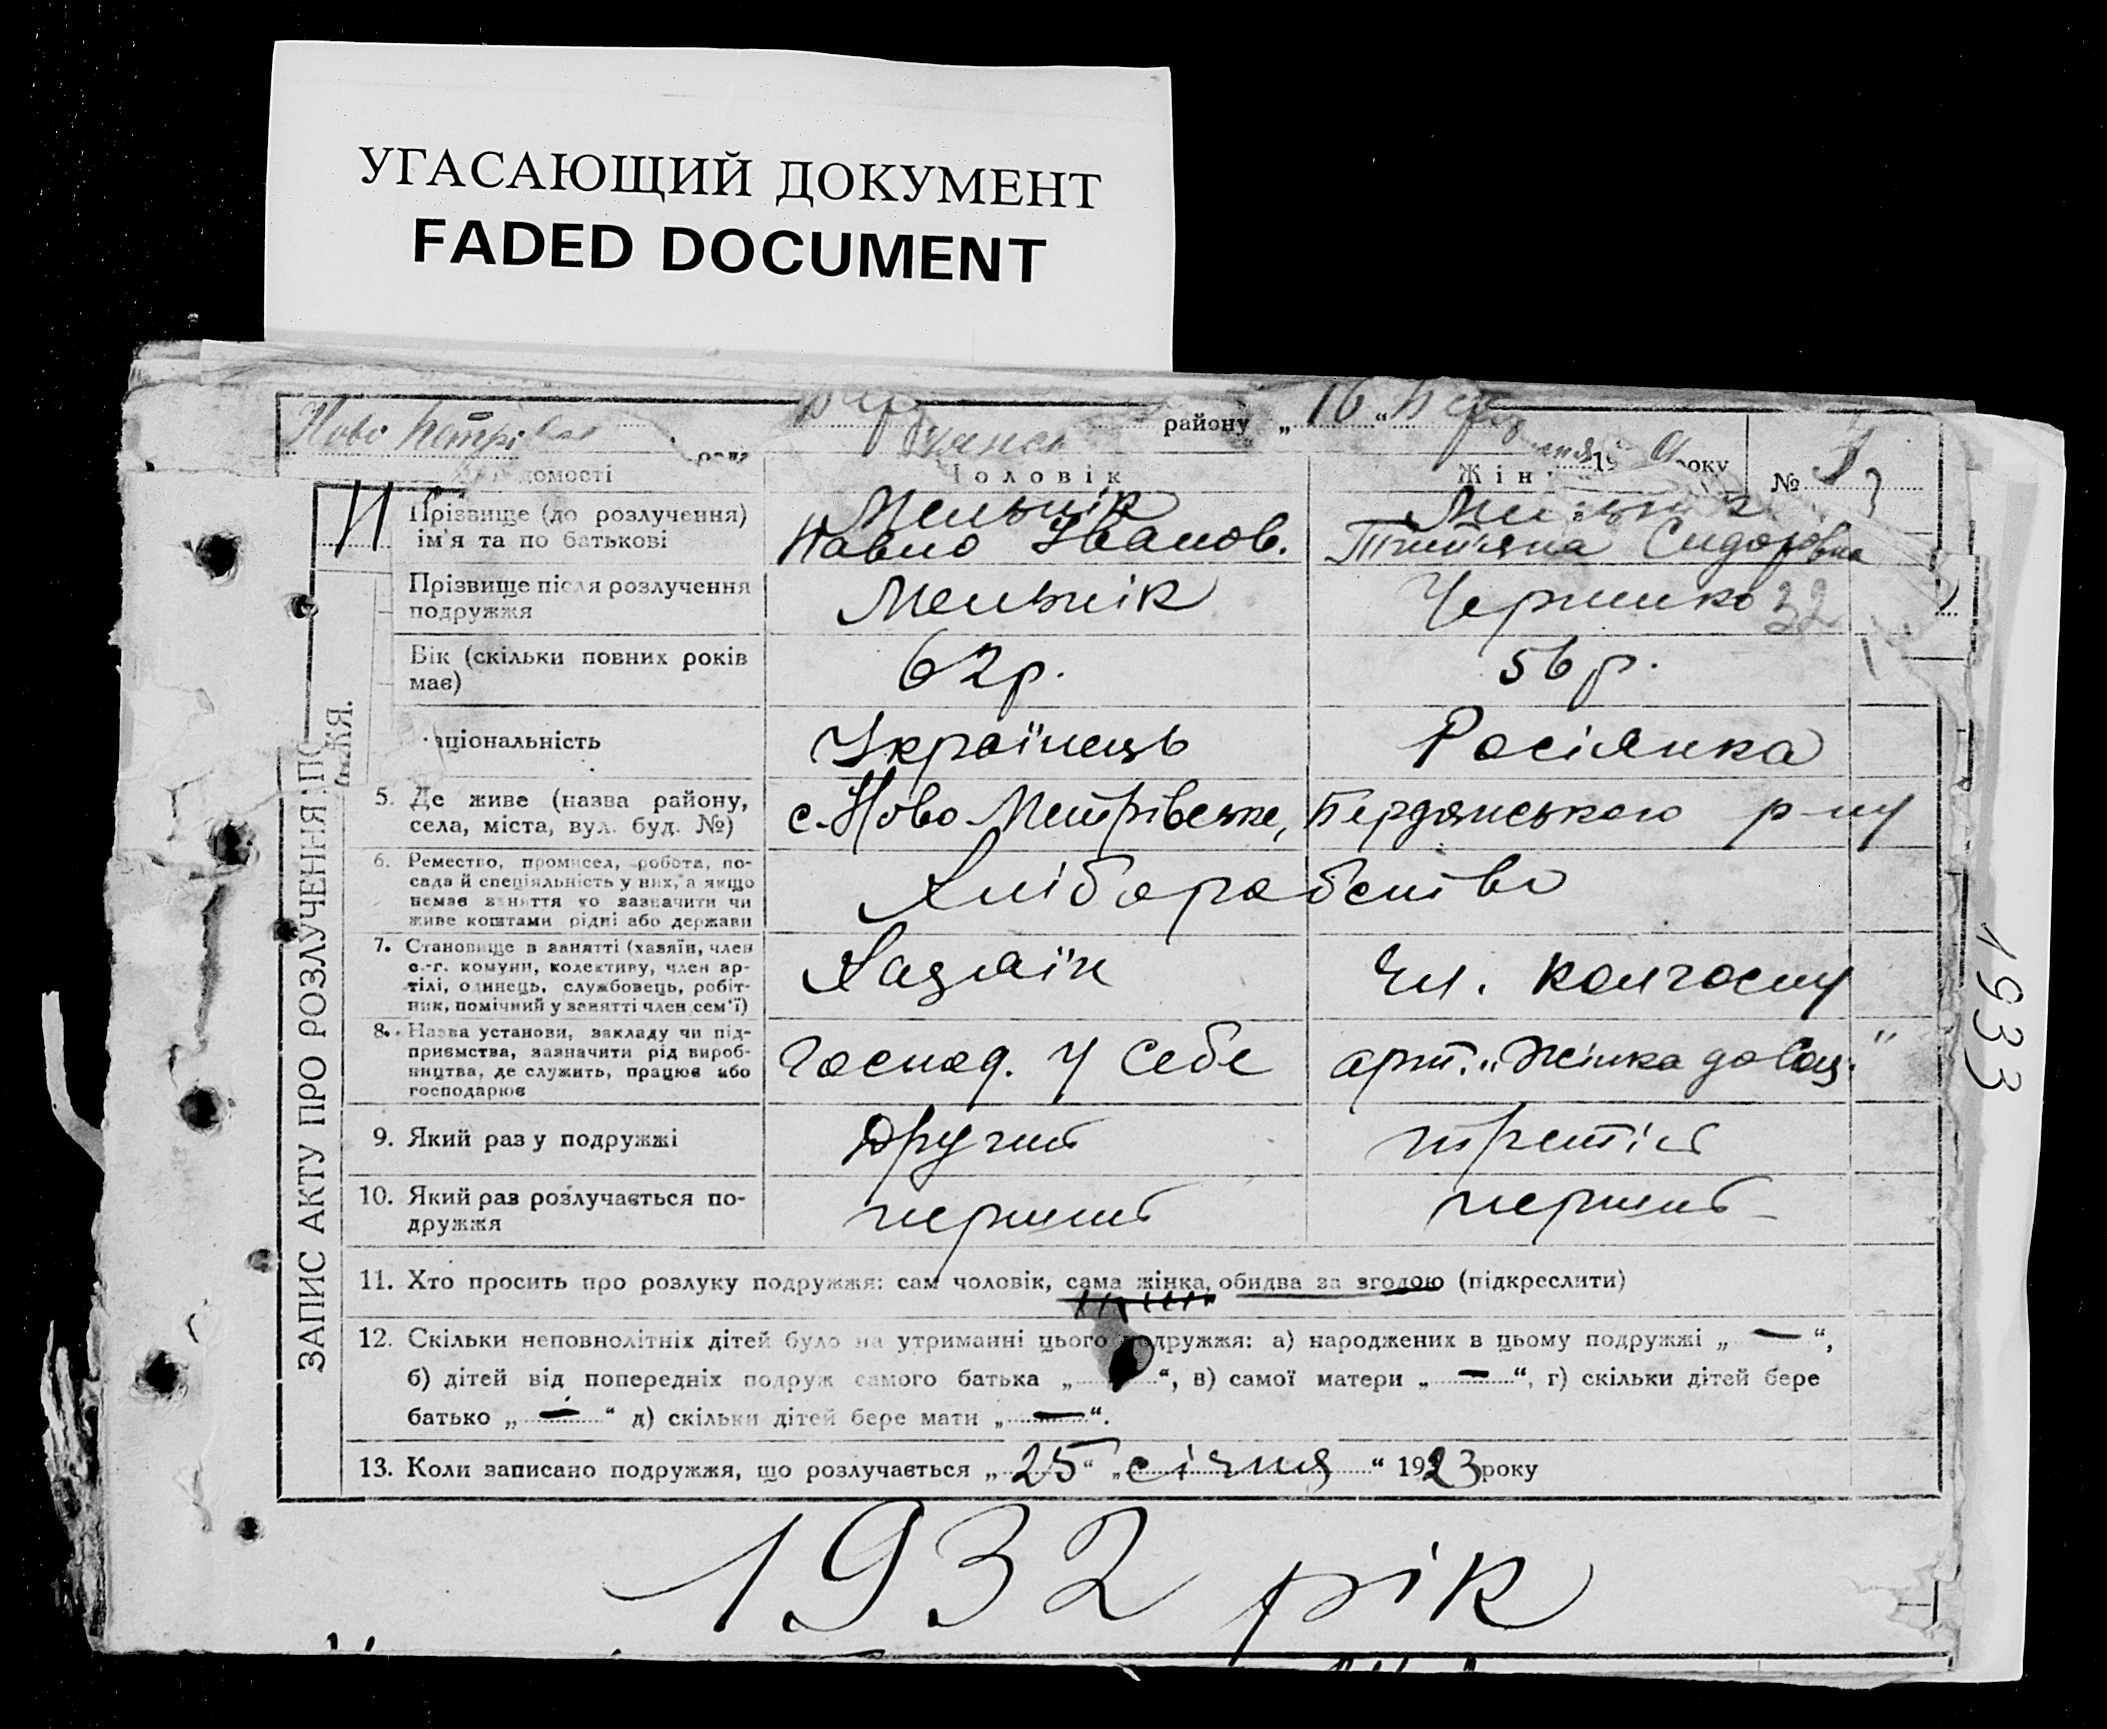 УГАСАЮЩИЙ ДОКУМЕНТ
FADED DOCUMENT
Ново Петрів району „ 16 “
рада 19 року №
домості Чоловік Жін
Прізвище (до розлучення) Мельнік Мельник
ім'я та по батькові Павло Іванов. Тітіяна Сидоровна
Прізвище після розлучення
подружжя Мельнік 32
Вік (скільки повних років
має) 62р. 56 р.
аціональність Українець Росіянка
5. Де живе (назва району,
села, міста, вул. буд. №) с. Ново Петрівське, Бердянського р-ну
6. Ремество, промисел, робота, по-
сада й спеціяльність у них, а якщо
немає заняття то зазначити чи
живе коштами рідні або держави
Хліборобство
7. Становище в занятті (хазяїн, член
с.-г. комуни, колективу, член ар-
тілі, одинець, службовець, робіт-
ник, помічний у занятті член сем'ї)
Хазяїн Чл. колгоспу
8. Назва установи, закладу чи під-
приємства, зазначити рід вироб-
ництва, де служить, працює або
господарює
господ. у себе арт. „Жінка до Соц."
9. Який раз у подружжі Другий третій
10. Який раз розлучається по-
дружжя перший перший
11. Хто просить про розлуку подружжя: сам чоловік, сама жінка, обидва за згодою (підкреслити)
12. Скільки неповнолітніх дітей було на утриманні цього подружжя: а) народжених в цьому подружжі „ — “,
б) дітей від попередніх подруж самого батька „ “, в) самої матери „ — “, г) скільки дітей бере
батько „ — “ д) скільки дітей бере мати „ — “.
13. Коли записано подружжя, що розлучається „ 25 “ „ січня “ 1923 року
ЗАПИС АКТУ ПРО РОЗЛУЧЕННЯ
1932 рік
1933